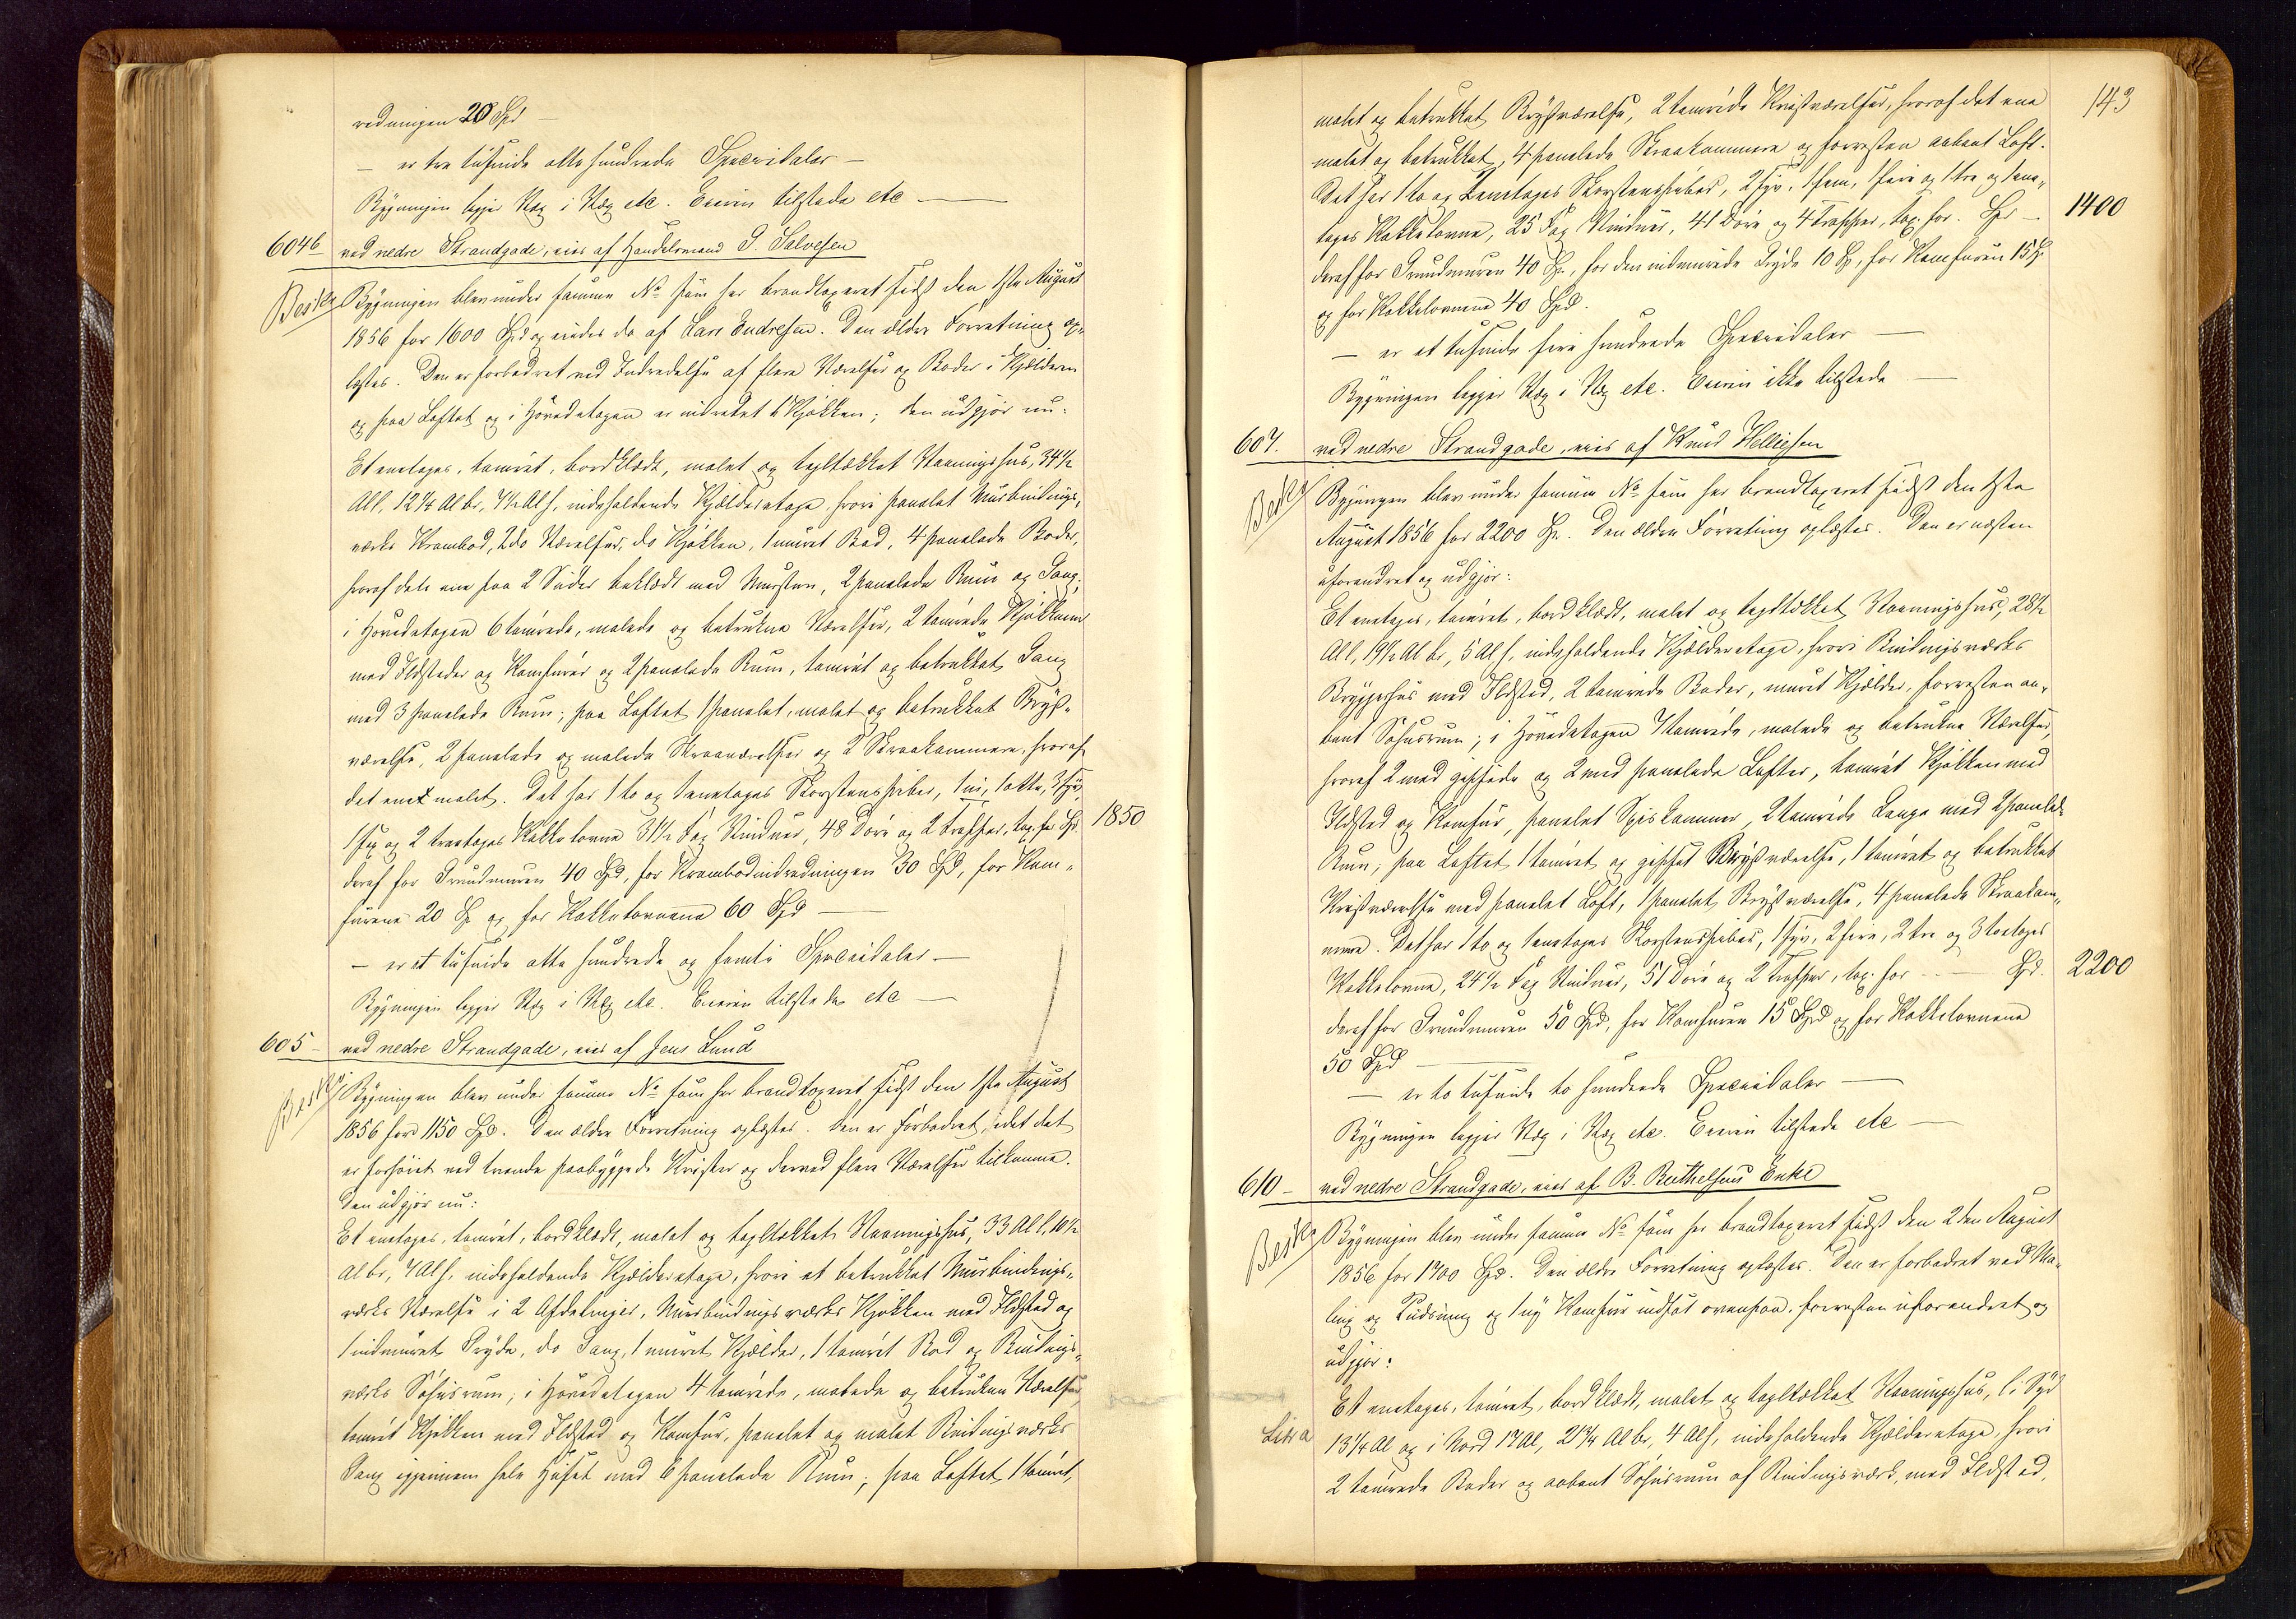 redningen 20 Spd —
— er tre tusinde otte hundrede Speciedaler —
Bygningen ligger Væg i Væg etc. Eieren tilstede etc —
604b ved nedre Strandgade, eies af Handelsmand G. Salvesen
Beskr Bygningen blev under samme No som her brandtaxeret sidst den 1ste August
1856 for 1600 Spd og eiedes da af Lars Endresen. Den ældre Forretning op-
læstes. Den er forbedret ved Indredelse af flere Værelser og Boder i Kjælderen
og paa Loftet og i Hovedetagen er indredet 1 Kjøkken; den udgjør nu:
Et enetages, tømret, bordklædt, malet og tegltækket Vaaningshus, 34½
Al l, 12¼ Al br, 4½ Al h, indeholdende Kjælderetage, hvori panelet Murbindings-
værks Krambod, 2 do Værelser, do Kjøkken, 1 muret Bod, 4 panelede Boder,
hvoraf dets ene paa 2 Sider beklædt med Mursten, 2 panelede Rum og Gang;
i Hovedetagen 6 tømrede, malede og betrukne Værelser, 2 tømrede Kjøkkener
med Ildsteder og Komfurer og 2 panelede Rum, tømret og betrukket Gang
med 3 panelede Rum; paa Loftet 1 panelet, malet og betrukket Bryst-
værelse, 2 panelede og malede Skraaværelser og 2 Skraakammere, hvoraf
det enet malet. Det har 1 to og 1 enetages Skorstenspiber, 1 ni, 1 otte, 3 syv,
1 sex og 2 treetages Kakkelovne 31½ Fag Vinduer, 48 Døre og 2 Trapper, tax. for Spd. 1850
deraf for Grundmuren 40 Spd, for Krambodindredningen 30 Spd, for Kom-
furene 20 Sp og for Kakkelovnene 60 Spd —
— er et tusinde otte hundrede og femti Speciedaler —
Bygningen ligger Væg i Væg etc. Eieren tilstede etc —
605 — ved nedre Strandgade, eies af Jens Lund
Beskr Bygningen blev under samme No som her brandtaxeret sidst den 1ste August
1856 for 1150 Spd. Den ældre Forretning oplæstes. Den er forbedret, idet det
er forhøiet ved tvende paabyggede Kvister og derved flere Værelser tilkomne.
Den udgjør nu:
Et enetages, tømret, bordklædt, malet og tegltækket Vaaningshus, 33 Al l, 10½
Al br, 4 Al h, indeholdende Kjælderetage, hvori et betrukket Murbindings-
værks Værelse i 2 Afdelinger, Murbindingsværks Kjøkken med Ildsted og
1 indmuret Gryde, do Gang, 1 muret Kjælder, 1 tømret Bod og Bindings-
værks Søhusrum; i Hovedetagen 4 tømrede, malede og betrukne Værelser,
tømret Kjøkken med Ildsted og Komfur, panelet og malet Bindingsværks
Gang igjennem hele Huset med 6 panelede Rum; paa Loftet 1 tømret,
143
malet og betrukket Brystværelse, 2 tømrede Kvistværelser, hvoraf det ene
malet og betrukket, 4 panelede Skraakammere og forresten aabent Loft.
Det har 1 to og 2 enetages Skorstenspiber, 2 syv, 1 fem, 1 fire og 1 tre og 1 ene-
tages Kakkelovne, 25 Fag Vinduer, 41 Døre og 4 Trapper, tax. for. Spd — 1400
deraf for Grundmuren 40 Sp., for den indmurede Gryde 10 Sp, for Komfuren 15 Sp
og for Kakkelovnene 40 Spd.
— er et tusinde fire hundrede Speciedaler —
Bygningen ligger Væg i Væg etc. Eieren ikke tilstede —
607. ved nedre Strandgade, eies af Knud Helliesen
Beskr Bygningen blev under samme No som her brandtaxeret sidst den 1ste
August 1856 for 2200 Sp. Den ældre Forretning oplæstes. Den er næsten
uforandret og udgjør:
Et enetages, tømret, bordklædt, malet og tegltækket Vaaningshus, 28½
Al l, 19½ Al br, 5 Al h, indeholdende Kjælderetage, hvori Bindingsværks
Bryggerhus med Ildsted, 2 tømrede Boder, muret Kjælder, forresten aa-
bent Søhusrum; i Hovedetagen 7 tømrede, malede og betrukne Værelser,
hvoraf 2 med gipsede og 2 med panelede Lofter, tømret Kjøkken med
Ildsted og Komfur, panelet Spiskammer, 2 tømrede Gange med 2 panelede
Rum; paa Loftet 1 tømret og gipset Brystværelse, 1 tømret og betrukket
Kvistværelse med panelet Loft, 1 panelet Brystværelse, 4 panelede Skraakam-
mere. Det har 1 to og 1 enetages Skorstenspiber, 1 syv, 2 fire, 2 tre og 3 toetages
Kakkelovne, 24½ Fag Vinduer, 51 Døre og 2 Trapper, tax. for — Spd. 2200
deraf for Grundmuren 50 Spd, for Komfuren 15 Spd og for Kakkelovnene
50 Spd —
— er to tusinde to hundrede Speciedaler —
Bygningen ligger Væg i Væg etc. Eieren tilstede etc —
610 — ved nedre Strandgade, eies af B. Berthelsens Enke
Beskr Bygningen blev under samme No som her brandtaxeret sidst den 2den August
1856 for 1900 Spd. Den ældre Forretning oplæstes. Den er forbedret ved Ma-
ling og Pudsning og 1 ny Komfur indsat ovenpaa, forresten uforandret og
udgjør:
Litra a Et enetages, tømret, bordklædt, malet og tegltækket Vaaningshus, l i Syd
13¼ Al og i Nord 17 Al, 21¼ Al br, 4 Al h, indeholdende Kjælderetage, hvori
2 tømrede Boder og aabent Søhusrum af Bindingsværk, med Ildsted,